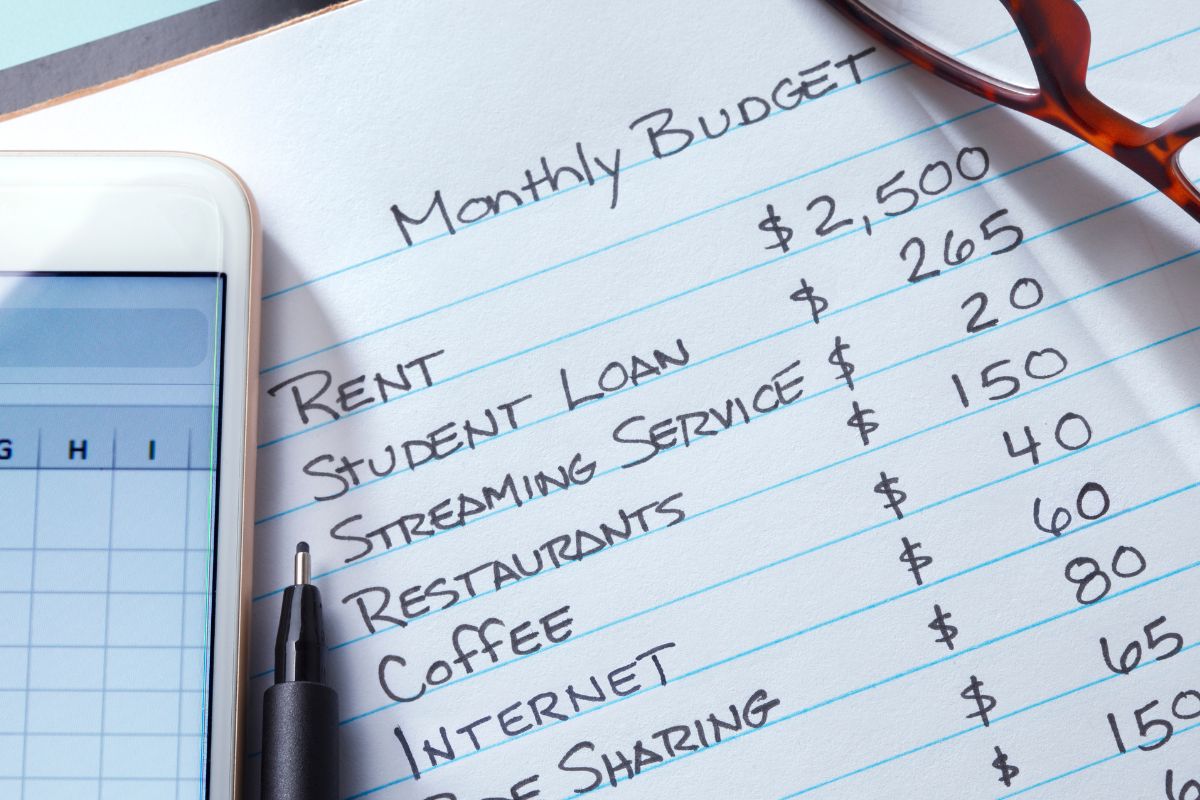 Monthly BUDGET
RENT $ 2,500
STUDENT LOAN $ 265
STREAMING SERVICE $ 20
RESTAURANTS $ 150
COFFEE $ 40
INTERNET $ 60
SHARING $ 80
$ 65
$ 150
G H I